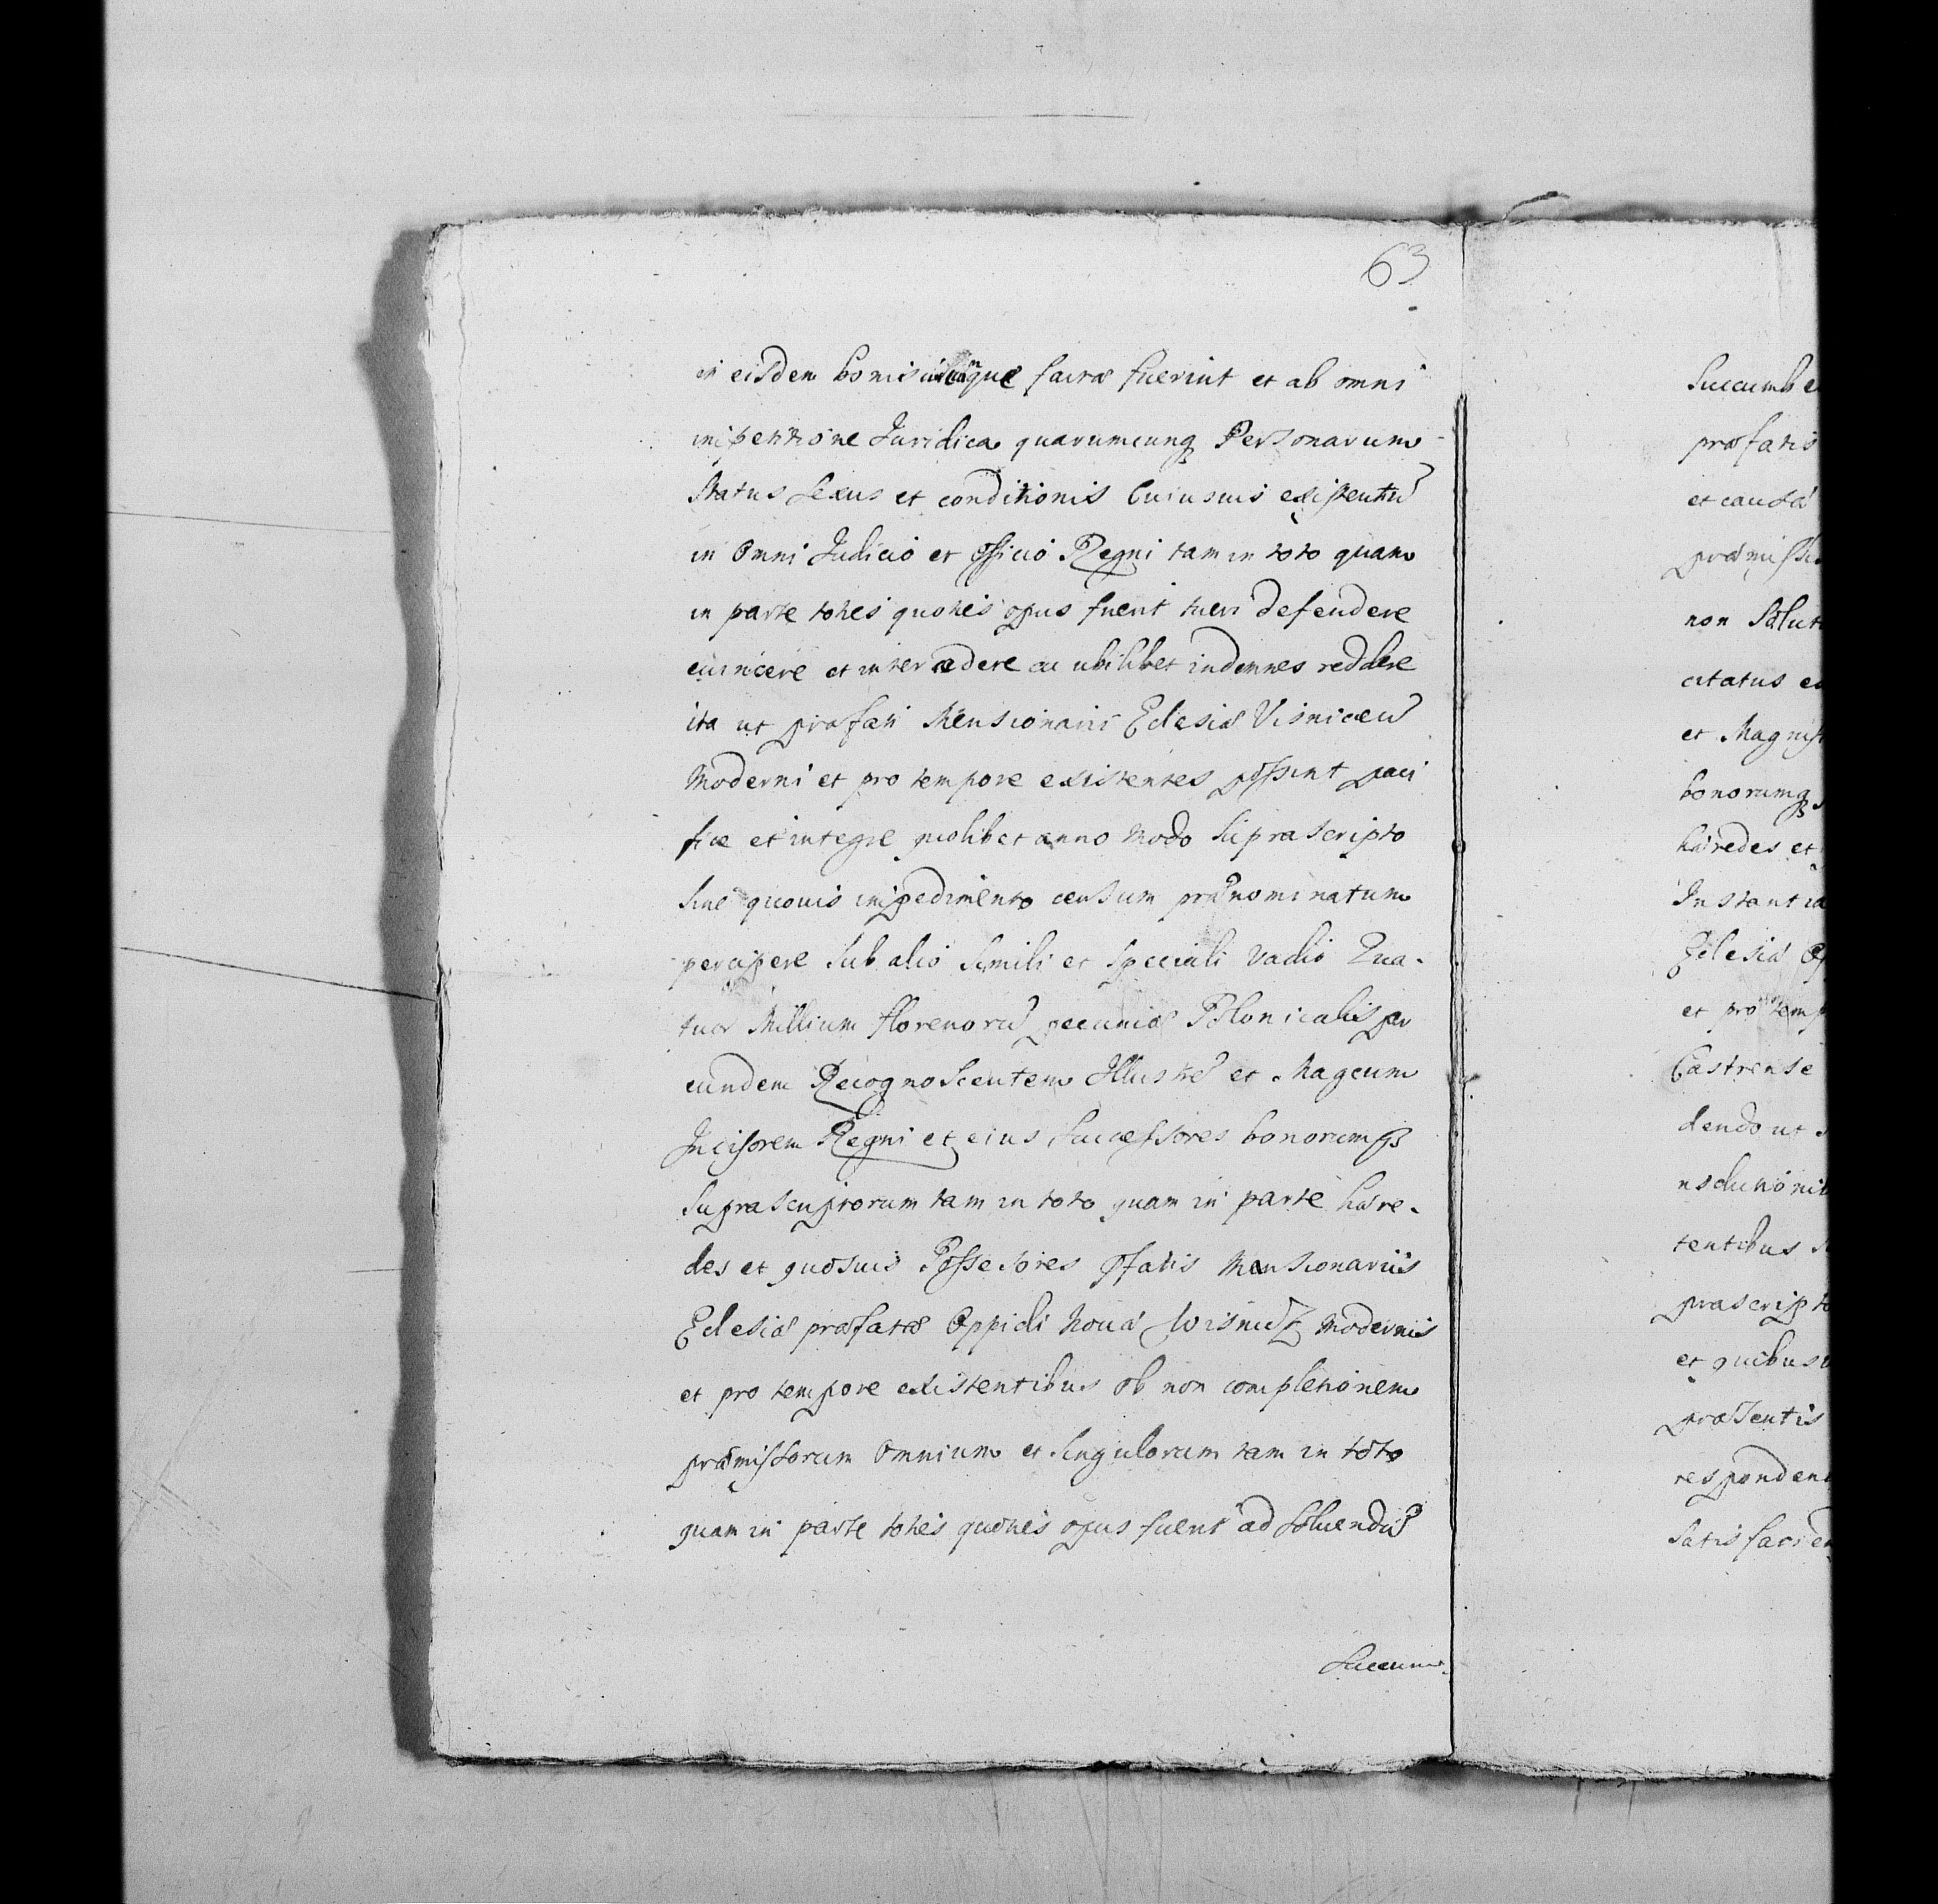 63
in eisdem bonis cuicunque factæ fuerint et ab omni
impetitione Juridica quarumcunq Personarum
Status Sexus et conditionis Cuiusuis existentiũ
in Omni Judicio et officio Regni tam in toto quam
in parte toties quoties opus fuerit tueri defendere
euincere et intercædere ac ubilibet indemnes reddere
ita ut præfati Mensionarii Eclesiæ Visnicen̄
Moderni et pro tempore existentes possint paci
ficæ et integre quolibet anno modo supra scripto
Sine quouis impedimento censum prænominatum
percipere Sub alio Simili et Speciali vadio Qua-
tuor Millium florenorũ pecuniæ Polonicalis per
eundem Recognoscentem Illustrē et Magcum
Incisorem Regni et eius Successores bonorumq
Suprascriptorum tam in toto quam in parte hære-
des et quosuis Possessores pfatis Mansionariis
Eclesiæ præfatæ Oppidi Noua Wisnicz modernis
et pro tempore existentibus ob non completionem
præmissorum Omnium et Singulorum tam in toto
quam in parte toties quoties opus fuerit ad Soluendũ
Succum-
Succumbe
præfatis
et causâ
præmisso
non Solut
citatus
et Magnif
bonorumq
hæredes et
Instantia
Eclesiæ
et pro temp
Castrense
dendo ut
tentibus
præscripto
et quibus
præsentis
respondend
Satisfacien